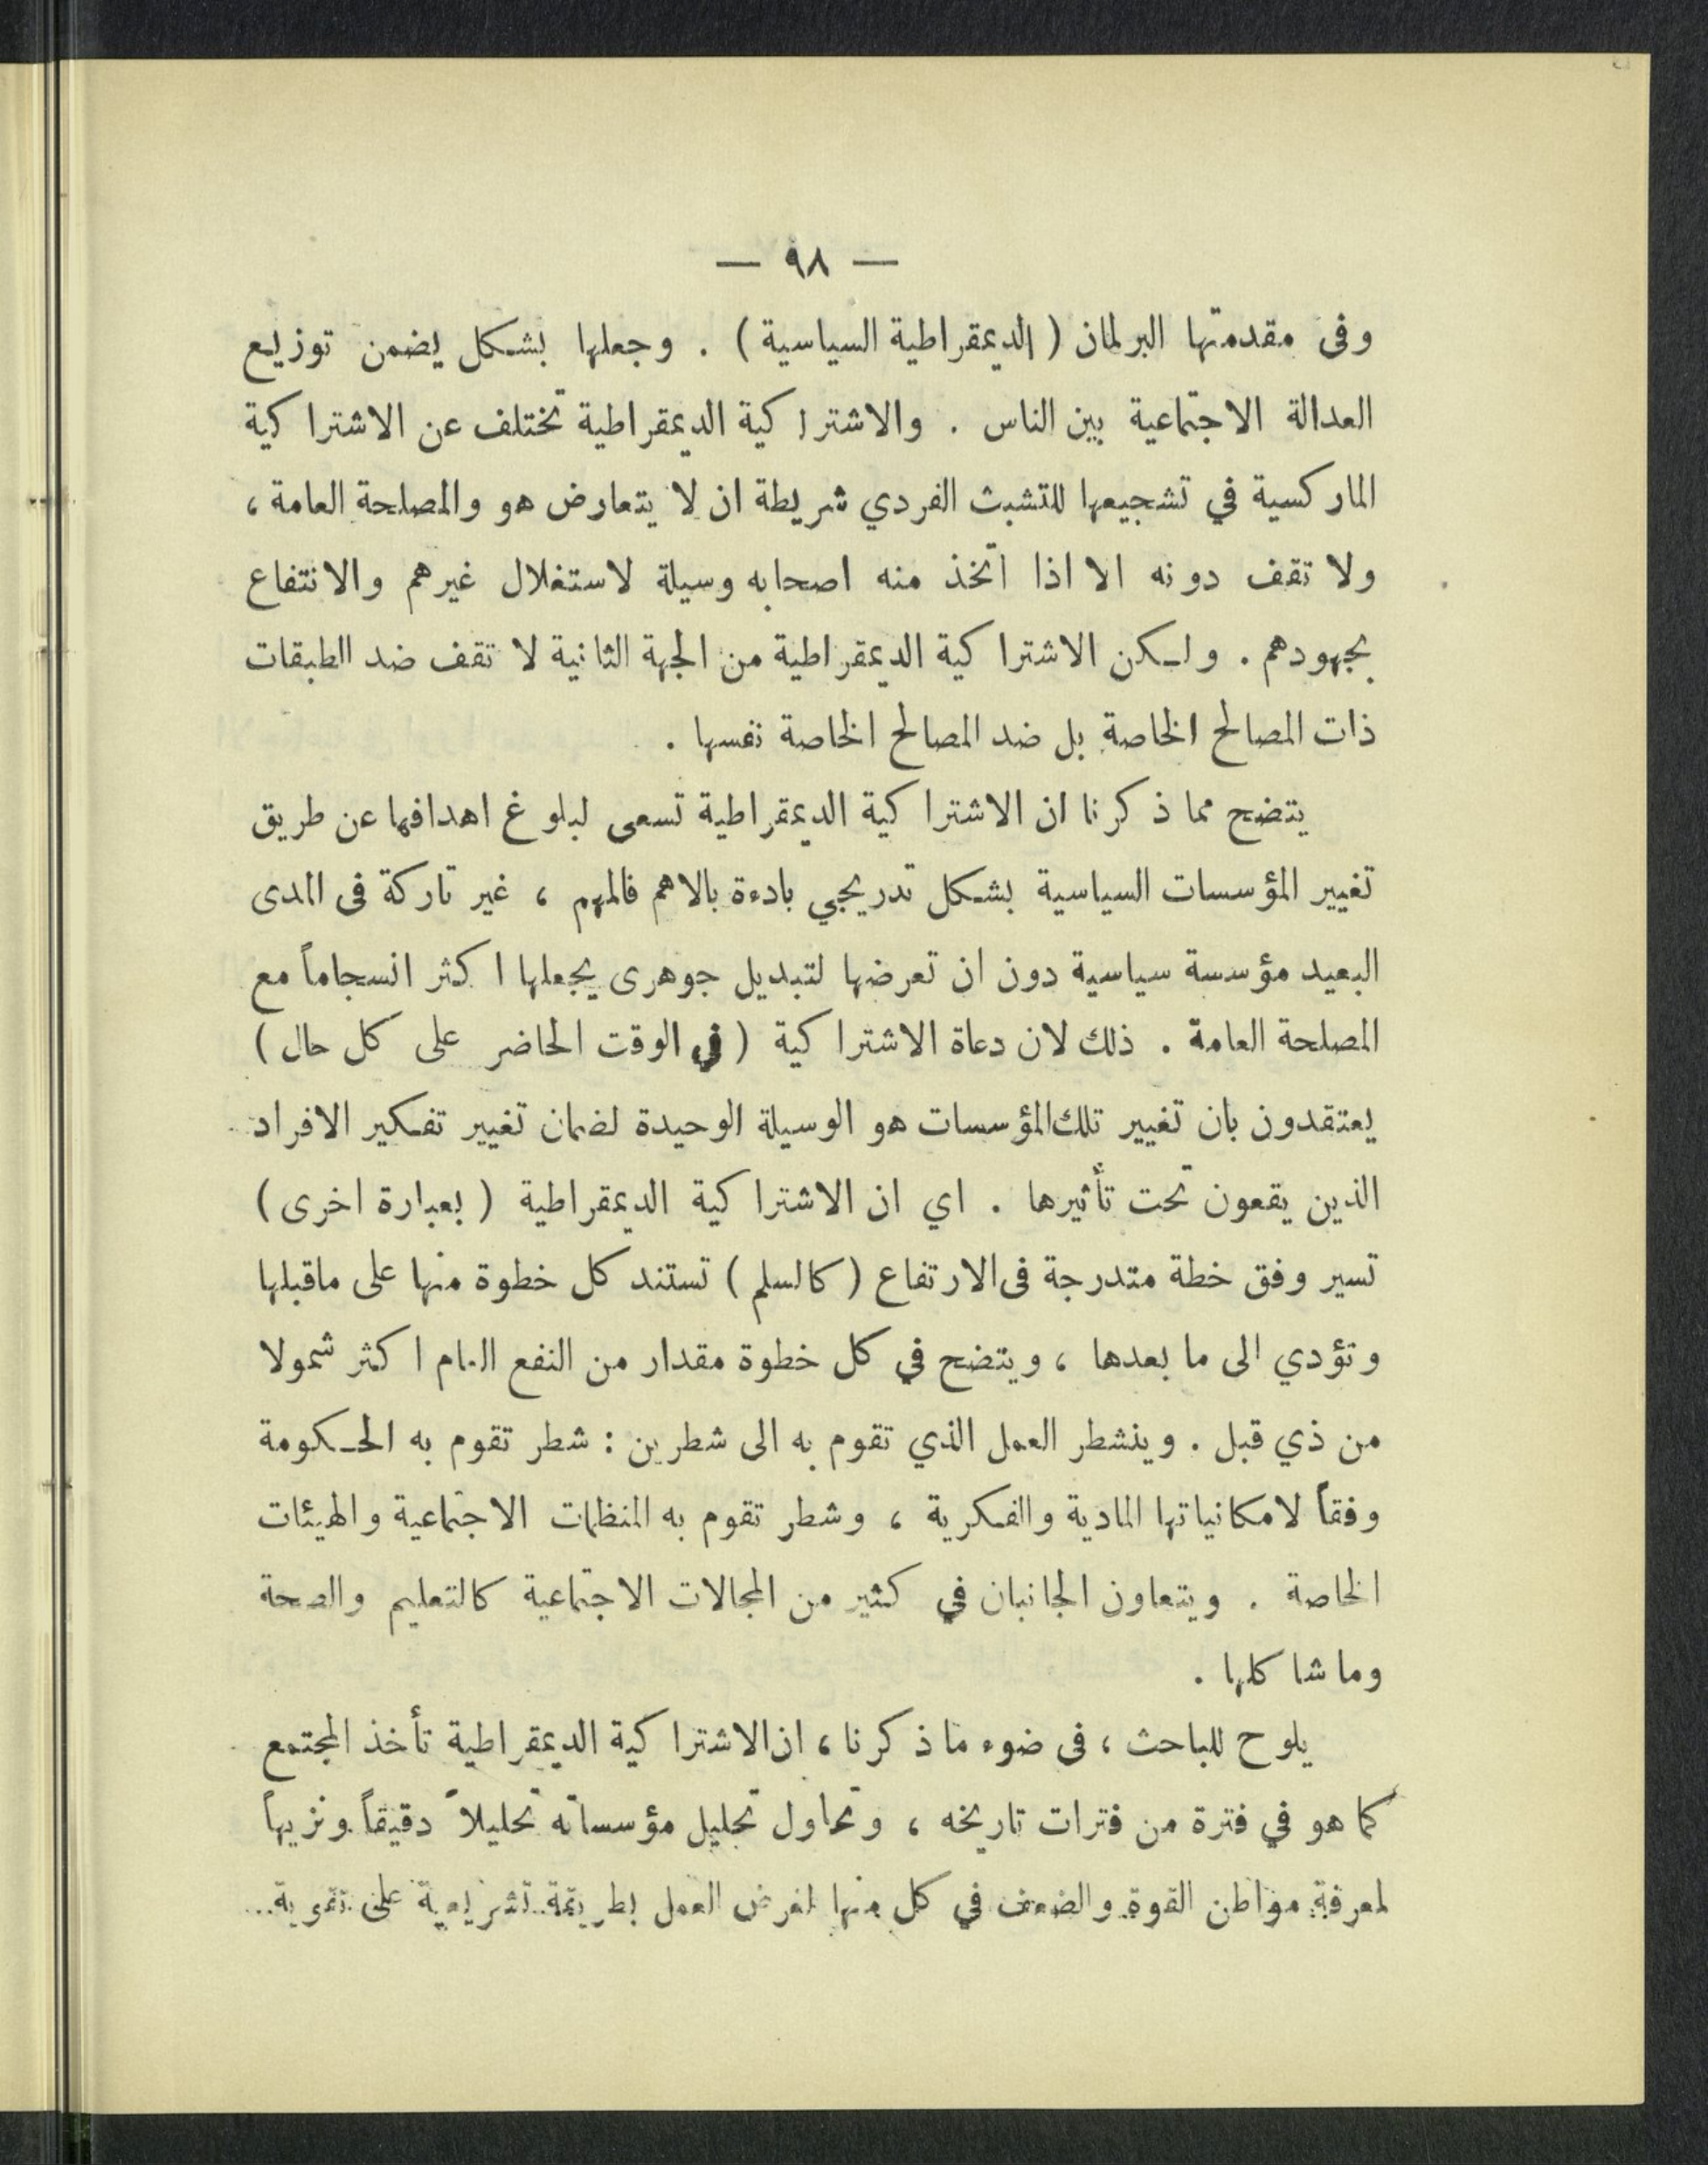 — ٩٨ —
وفى مقدمتها البرلمان ( الديمقراطية السياسية ) . وجعلها بشكل يضمن توزيع
العدالة الاجتماعية بين الناس . والاشتراكية الديمقراطية تختلف عن الاشتراكية
الماركسية في تشجيعها للتشبث الفردي شريطة ان لا يتعارض هو والمصلحة العامة ،
ولا تقف دونه الا اذا اتخذ منه اصحابه وسيلة لاستغلال غيرهم والانتفاع
بجهودهم . ولكن الاشتراكية الديمقراطية من الجهة الثانية لا تقف ضد الطبقات
ذات المصالح الخاصة بل ضد المصالح الخاصة نفسها .
يتضح مما ذكرنا ان الاشتراكية الديمقراطية تسعى لبلوغ اهدافها عن طريق
تغيير المؤسسات السياسية بشكل تدريجي بادءة بالاهم فالمهم ، غير تاركة فى المدى
البعيد مؤسسة سياسية دون ان تعرضها لتبديل جوهرى يجعلها اكثر انسجاماً مع
المصلحة العامة . ذلك لان دعاة الاشتراكية ( في الوقت الحاضر على كل حال )
يعتقدون بان تغيير تلك المؤسسات هو الوسيلة الوحيدة لضمان تغيير تفكير الافراد
الذين يقعون تحت تأثيرها . اي ان الاشتراكية الديمقراطية ( بعبارة اخرى )
تسير وفق خطة متدرجة فى الارتفاع ( كالسلم ) تستند كل خطوة منها على ماقبلها
وتؤدي الى ما بعدها ، ويتضح في كل خطوة مقدار من النفع العام اكثر شمولا
من ذي قبل . وينشطر العمل الذي تقوم به الى شطرين : شطر تقوم به الحكومة
وفقاً لامكانياتها المادية والفكرية ، وشطر تقوم به المنظمات الاجتماعية والهيئات
الخاصة . ويتعاون الجانبان في كثير من المجالات الاجتماعية كالتعليم والصحة
وما شاكلها .
يلوح للباحث ، فى ضوء ما ذكرنا ، ان الاشتراكية الديمقراطية تأخذ المجتمع
كما هو في فترة من فترات تاريخه ، وتحاول تحليل مؤسساته تحليلاً دقيقاً ونزيهاً
لمعرفة مواطن القوة والضعف في كل منها لغرض العمل بطريقة تشريعية على تقوية